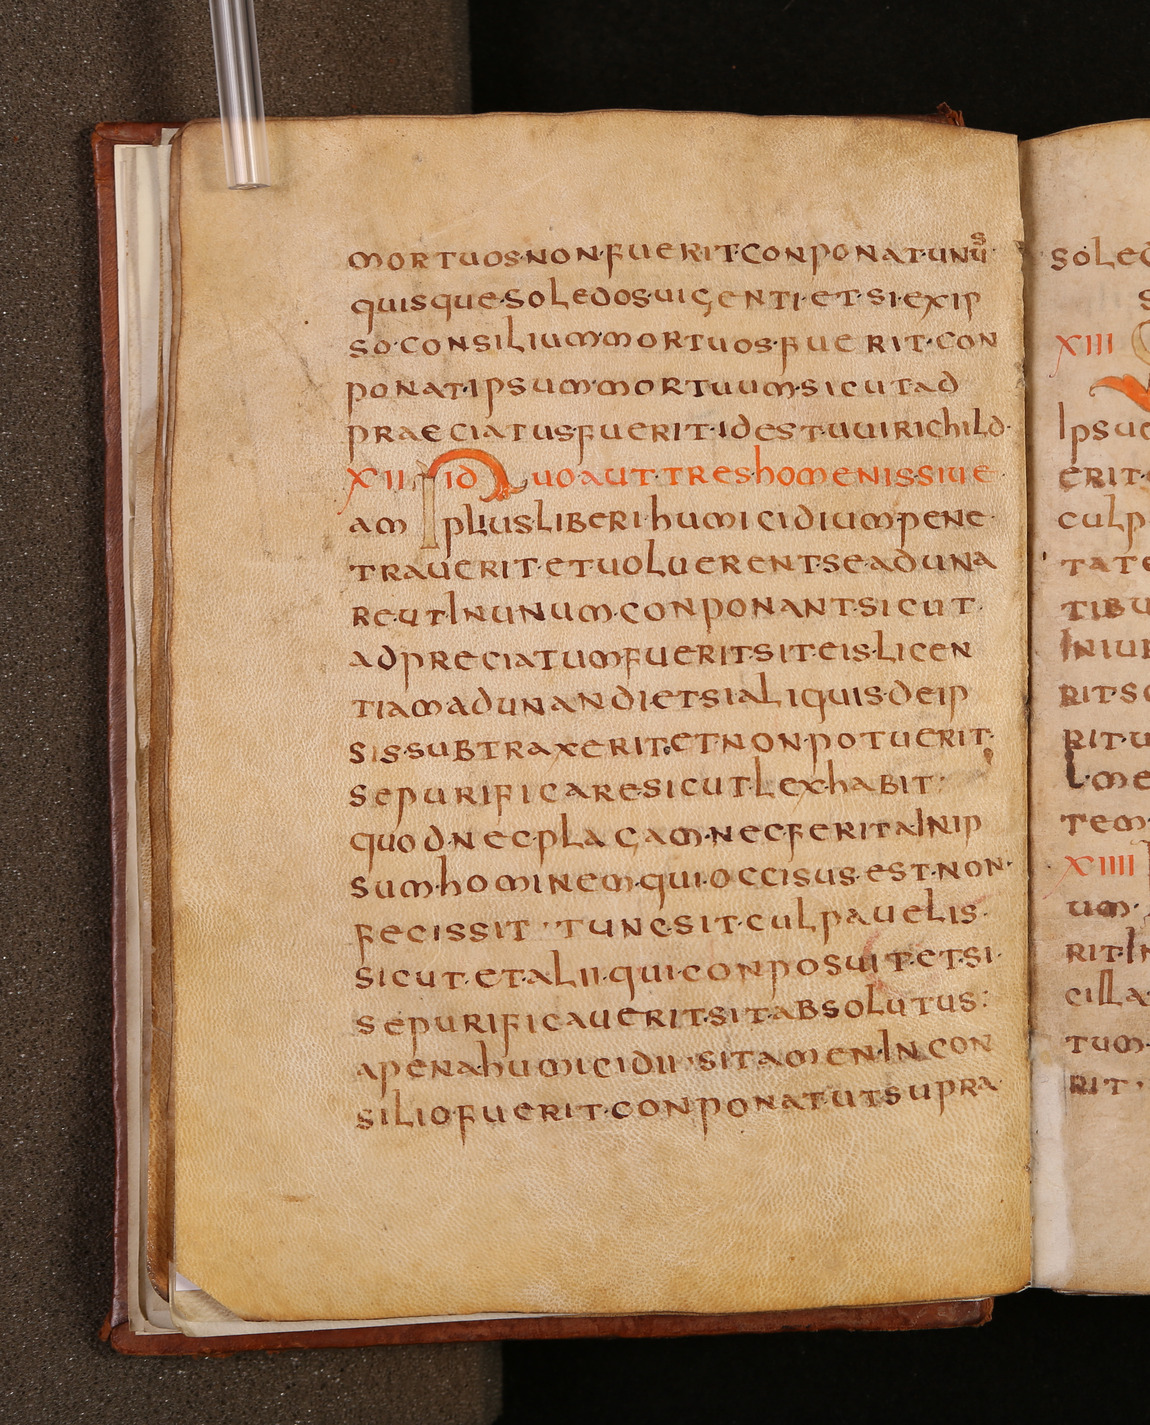 mortuos·non·fuerit·conponat·unus
quisque·soledos·uigenti·et·si·ex ip
so·consilium·mortuos·fuerit·con
ponat·ipsum·mortuum·sicut ad
praeciatus fuerit·id est·uuirichild·
XII Si duo aut·tres homenis·siue·
am plius liberi·humicidium·pene·
trauerit·et uoluerent·se·aduna
re·ut in unum·conponant·sicut·
adpreciatum fuerit·sit·eis·licen
tiam adunandi et·si aliquis·de ip
sis·subtraxerit·et non·potuerit·
se purificare·sicut·lex·habit·
quod·nec·plagam·nec ferita in ip
sum·hominem·qui·occisus·est·non·
fecissit·tunc·sit·culpauelis·
sicut·et·alii·qui·conposuit·et·si·
se purificauerit·sit·absolutus:
a pena·humicidii·si tamen·in con
silio fuerit·conponat·ut supra·
XIII
XIIII